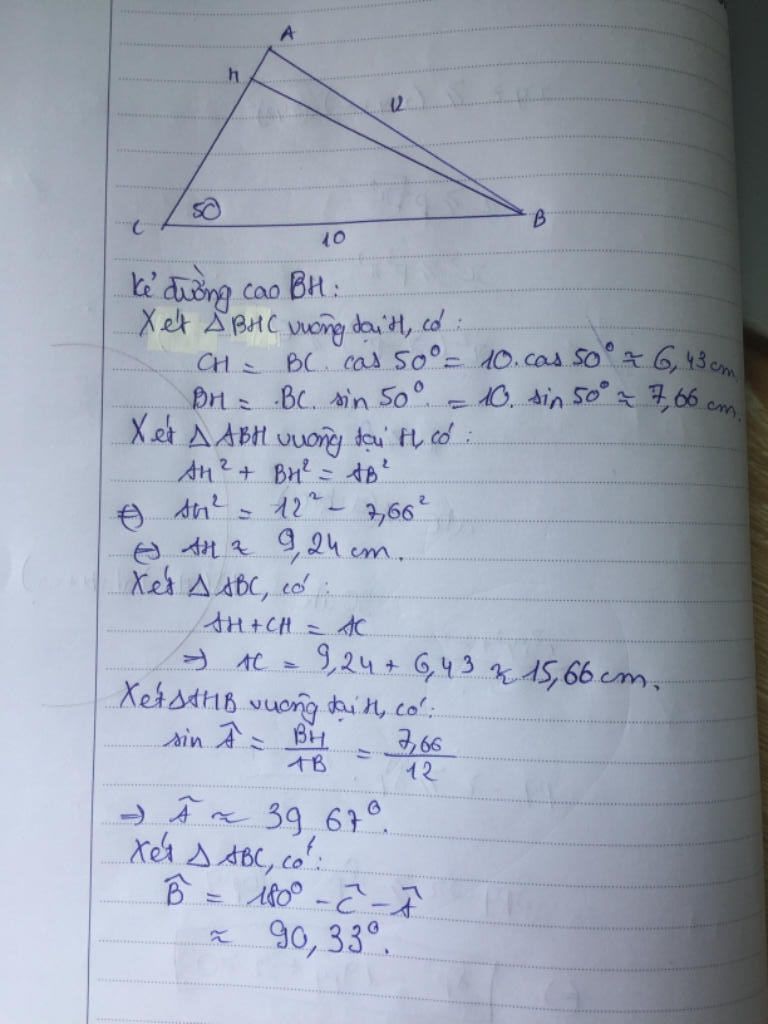 A
H
12
50
C
B
10
Kẻ đường cao BH:
Xét △BHC vuông tại H, có:
CH = BC. cos 50° = 10. cos 50° ≈ 6,43 cm.
BH = BC. sin 50°. = 10. sin 50° ≈ 7,66 cm.
Xét △ABH vuông tại H, có:
AH² + BH² = AB²
⇔ AH² = 12² - 7,66²
⇔ AH ≈ 9,24 cm.
Xét △ABC, có:
AH + CH = AC
⇒ AC = 9,24 + 6,43 ≈ 15,66 cm.
Xét △AHB vuông tại H, có:
sin Â = BH/AB = 7,66/12
⇒ Â ≈ 39 67°.
Xét △ABC, có:
B̂ = 180° - Ĉ - Â
≈ 90,33°.